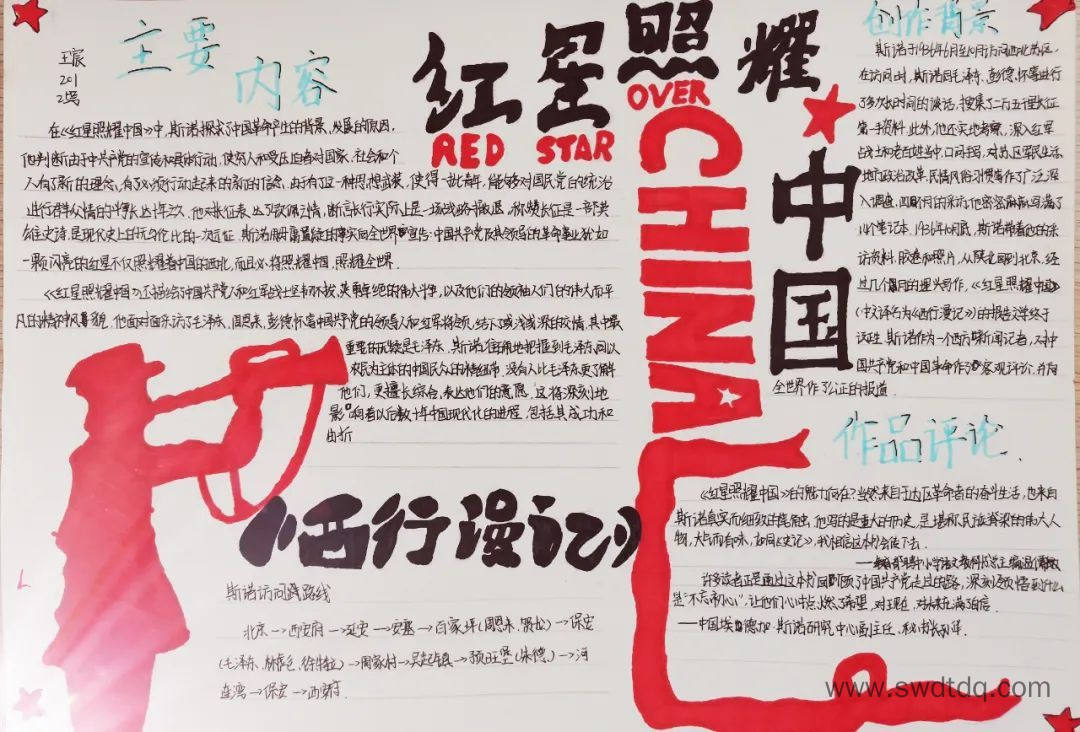 红星照耀中国
RED STAR
OVER
CHINA
王宸
201
2号
主要
内容
在《红星照耀中国》中,斯诺探求了中国革命产生的背景,发展的原因,
他判断由于中共产党的宣传和具体行动,使穷人和受压迫者对国家、社会和个
人有了新的理念,有了必须行动起来的新的信念.由于有了一种思想武装,使得一批青年,能够对国民党的统治
进行群众情的斗争达十年之久.他对长征表达了钦佩之情,断言长行实际上是一场战略撤退,称赞长征是一部英
雄史诗,是现代史上的无与伦比的一次远征.斯诺用毋庸置疑的事实向全世界宣告:中国共产党及其领导的革命事业犹如
一颗闪亮的红星不仅照耀着中国的西北,而且必将照耀中国,照耀全世界.
《红星照耀中国》还描绘了中国共产党人和红军战士坚韧不拔、英勇卓绝的伟大斗争,以及他们的领袖人们的伟大而平
凡的精神风貌.他面对面采访了毛泽东、周恩来、彭德怀等中国共产党的领导人和红军将领,结下或浅或深的友情,其中最
重要的无疑是毛泽东.斯诺准确地把握到毛泽东同以
农民为主体的中国民众的精神纽带,没有人比毛泽东更了解
他们,更擅长综合、表达他们的意愿.这将深刻地
影响着以后数十年中国现代化的进程,包括其成功和
曲折
《西行漫记》
斯诺访问路线
北京→西安府→延安→安塞→百家坪(周恩来、贺松)→保安
(毛泽东、林彪、徐特立)→周家村→吴起镇→预旺堡(朱德)→河
连湾→保安→西安府.
创作背景
斯诺于1936年6月至10月访问西北苏区,
在访问时,斯诺同毛泽东、彭德怀等进行
了多次长时间的谈话,搜集了二万五千里长征
第一手资料.此外,他还实地考察,深入红军
战士和老百姓当中,口问手写,对苏区军民生活
地方政治改革,民情风俗习惯等作了广泛深
入调查.四个月的采访,他密密麻麻写满了
14个笔记本.1936年10月底,斯诺带着他的采
访资料、胶卷和照片,从陕北回到北京,经
过几个月的埋头写作,《红星照耀中国》
(中文译名为《西行漫记》)的报告文学终于
诞生.斯诺作为一个西方新闻记者,对中
国共产党和中国革命作了客观评价,并向
全世界作了公正的报道.
作品评论.
《红星照耀中国》的魅力何在?当然来自于边区革命者的奋斗生活,也来自
斯诺真实而细致的笔触.他写的是重大的历史,是堪称民族脊梁的伟大人
物,大与而有味,如同《史记》,我相信这本书会传下去.
许多读者正是通过这本书回顾了中国共产党走过的路,深刻领悟到什么
是“不忘初心”,让他们心中点燃了希望,对现在、对未来充满了自信.
——中国埃德加·斯诺研究中心副主任、秘书长孙华.
www.swdtdq.com